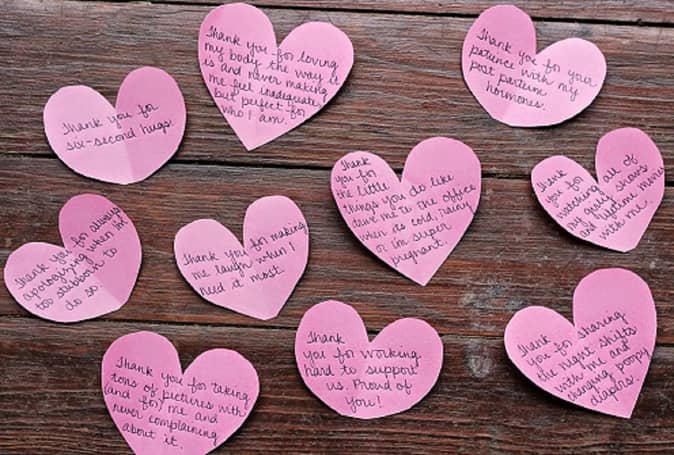 Thank you for loving
my body the way it
is and never making
me feel inadequate,
but perfect for
who I am.
Thank you for your
patience with my
post partum
hormones.
Thank you for
six-second hugs.
Thank
you for
the little
things you do like
drive me to the office
when its cold, rainy
or i'm super
pregnant.
Thank
you for
watching all of
my girly shows
and lifetime movies
with me.
Thank you for always
apologizing when I'm
too stubborn to
do so.
Thank you for making
me laugh when I
need it most.
Thank
you for working
hard to support
us. Proud of
you!
Thank
you for sharing
the night shifts
with me and
changing poopy
diapers.
Thank you for taking
tons of pictures with
(and for) me and
never complaining
about it.